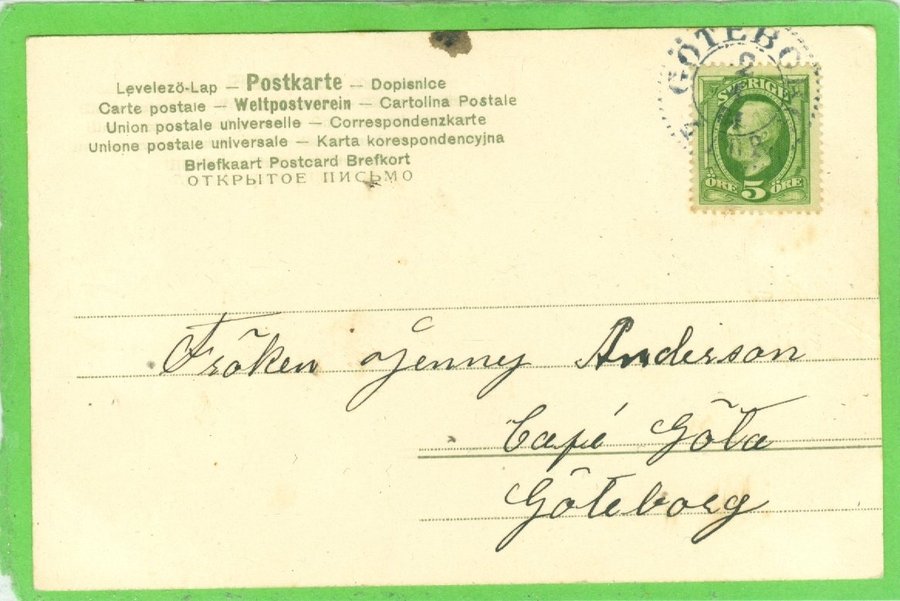 Levelező-Lap – Postkarte – Dopisnice
Carte postale – Weltpostverein – Cartolina Postale
Union postale universelle – Correspondenzkarte
Unione postale universale – Karta korespondencyjna
Briefkaart Postcard Brefkort
ОТКРЫТОЕ ПИСЬМО
GÖTEBO
2
SVERIGE
ÖRE 5 ÖRE
Fröken Jenny Anderson
Café Göta
Göteborg